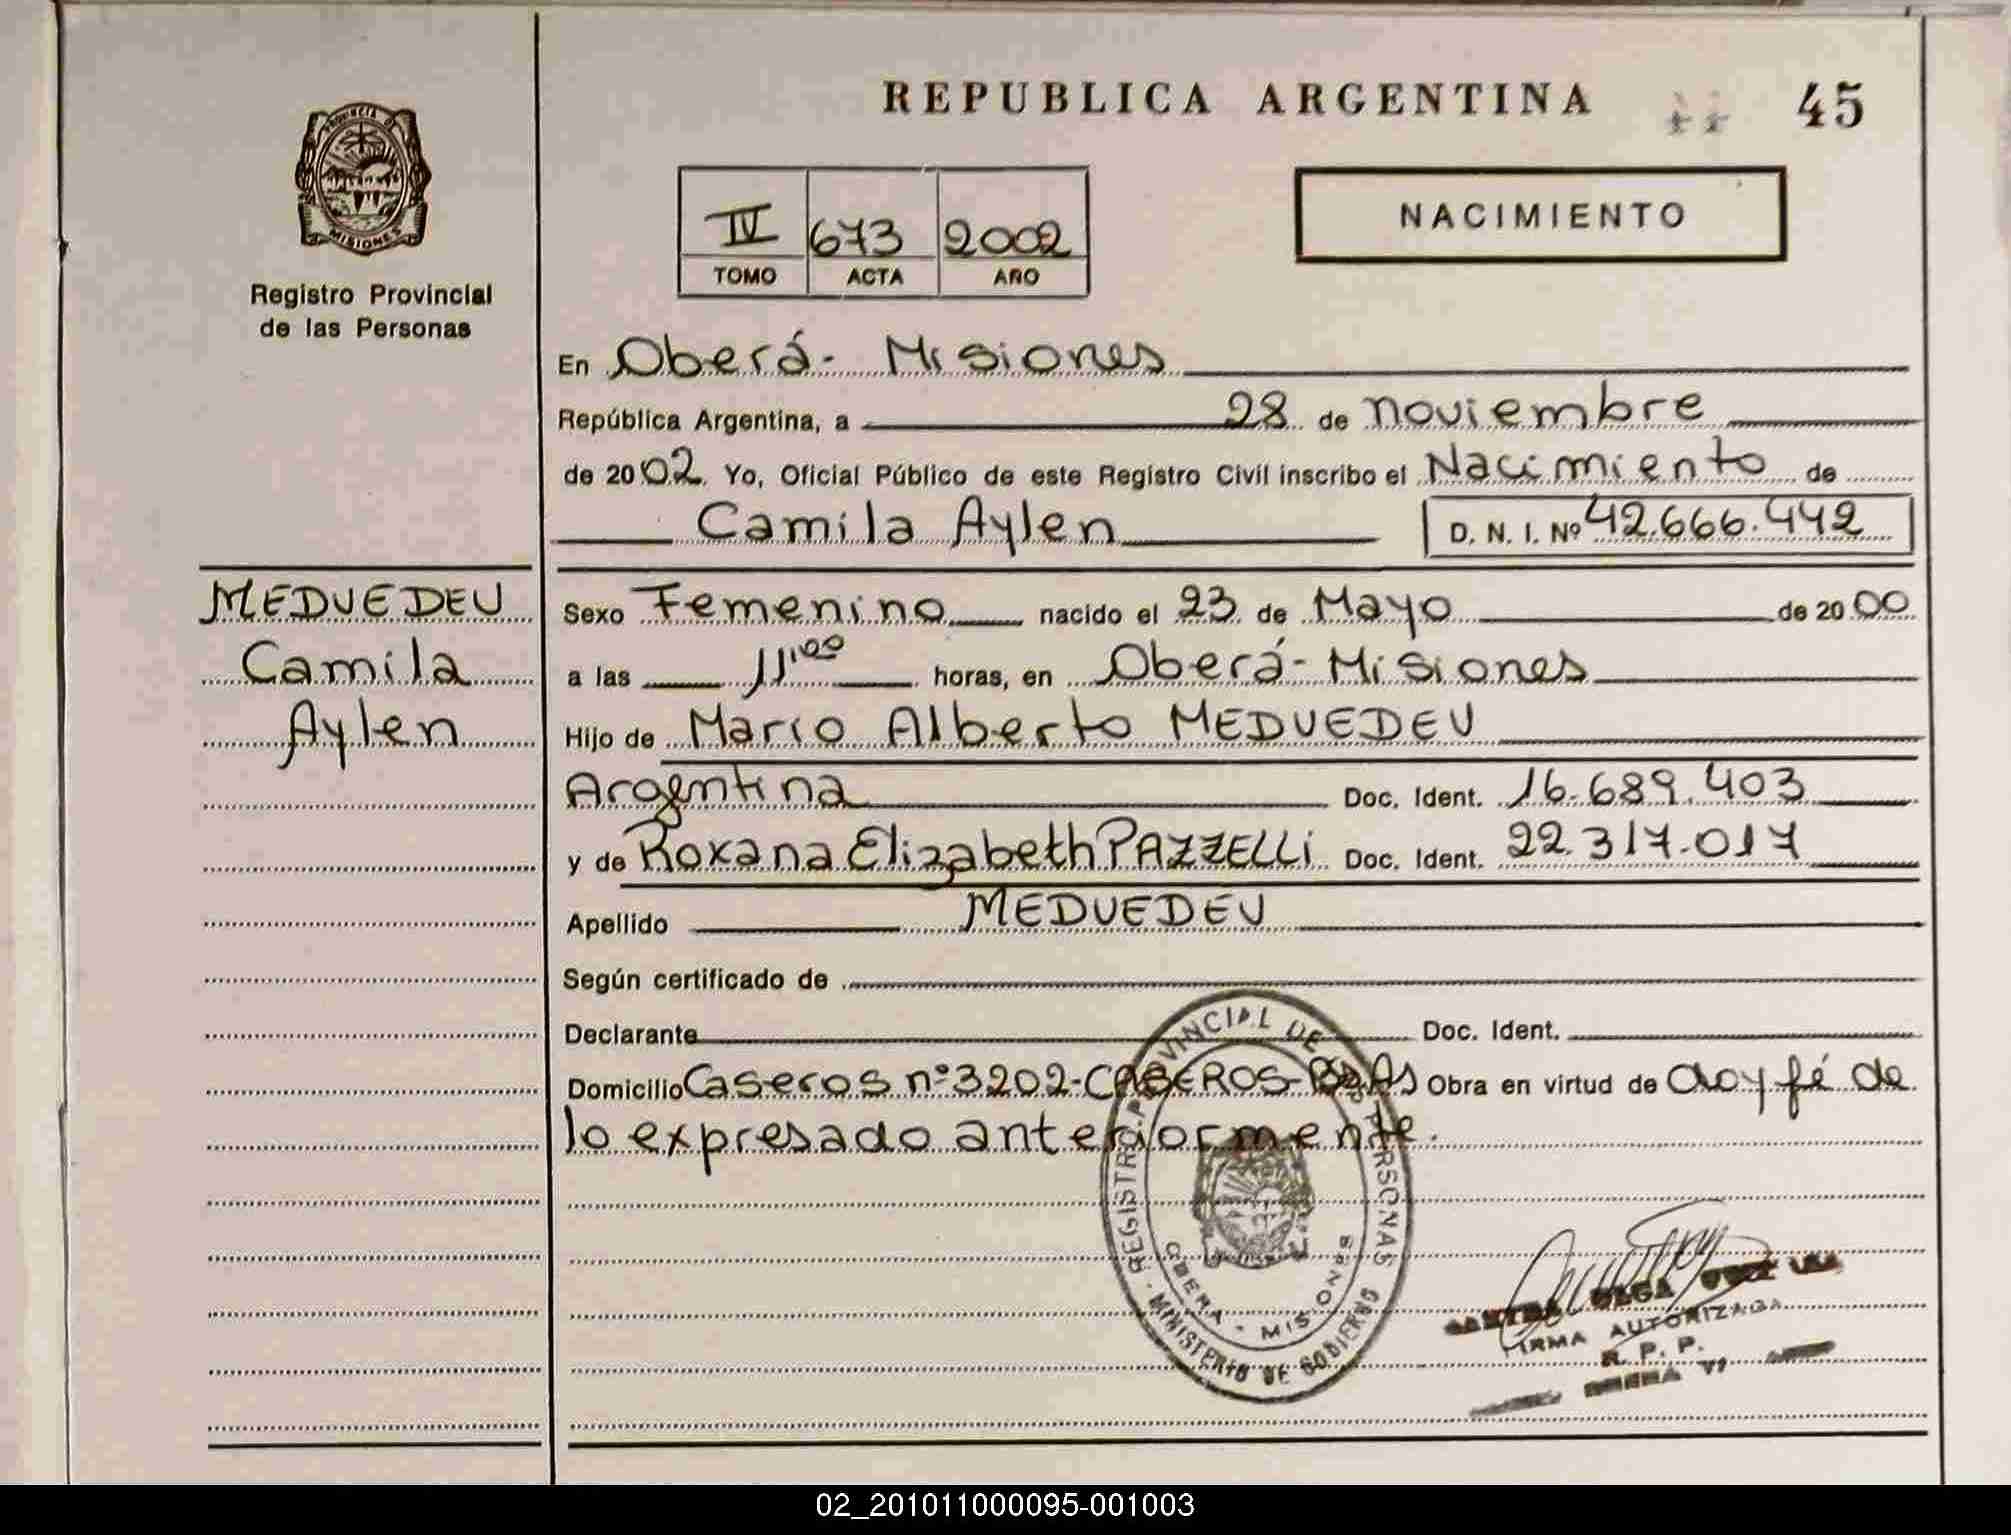 REPUBLICA ARGENTINA
45
PROVINCIA DE
MISIONES
Registro Provincial
de las Personas
IV 673 2002
TOMO ACTA AÑO
NACIMIENTO
En Oberá- Misiones
República Argentina, a 28 de noviembre
de 2002. Yo, Oficial Público de este Registro Civil inscribo el Nacimiento de
Camila Aylen D. N. I. Nº 42.666.442
MEDVEDEV
Camila
Aylen
Sexo Femenino nacido el 23 de Mayo de 2000
a las 11'00 horas, en Oberá-Misiones
Hijo de Mario Alberto MEDVEDEV
Argentina Doc. Ident. 16.689.403
y de Roxana Elizabeth PAZZELLi Doc. Ident. 22.317.017
Apellido MEDVEDEV
Según certificado de
Declarante Doc. Ident.
Domicilio Caseros nº3202-CASEROS-BsAs Obra en virtud de doy fé de
lo expresado anteriormente.
REGISTRO PROVINCIAL DE LAS PERSONAS
OBERA - MISIONES
MINISTERIO DE GOBIERNO
FIRMA AUTORIZADA
R. P. P.
02_201011000095-001003